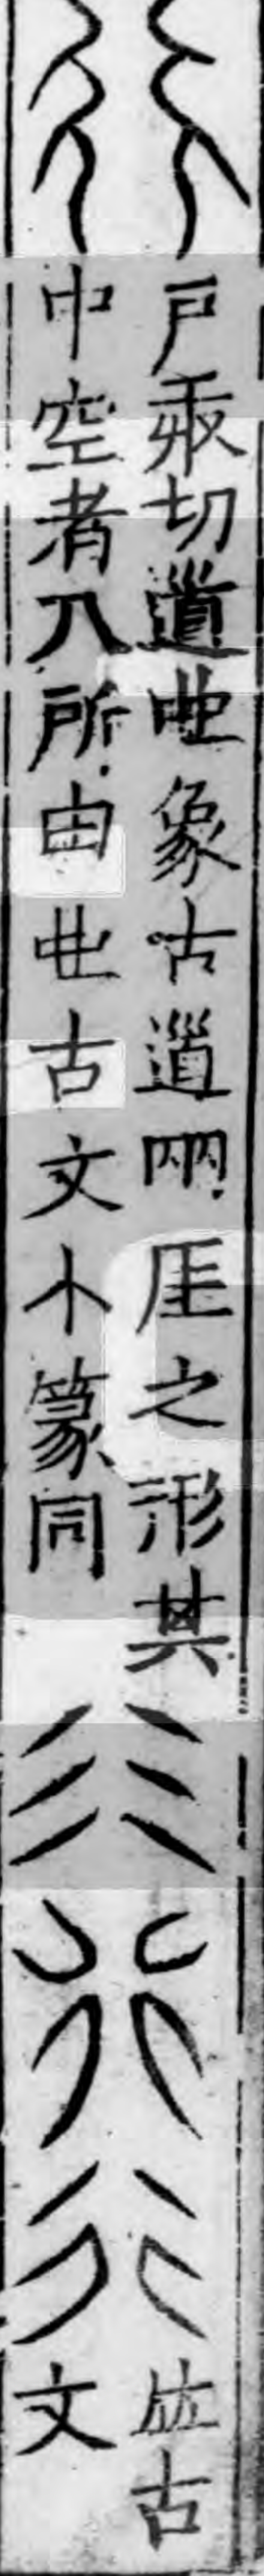 行
戶㪅切道也象古道兩厓之形其
中空者人所由也古文小篆同
竝古
文